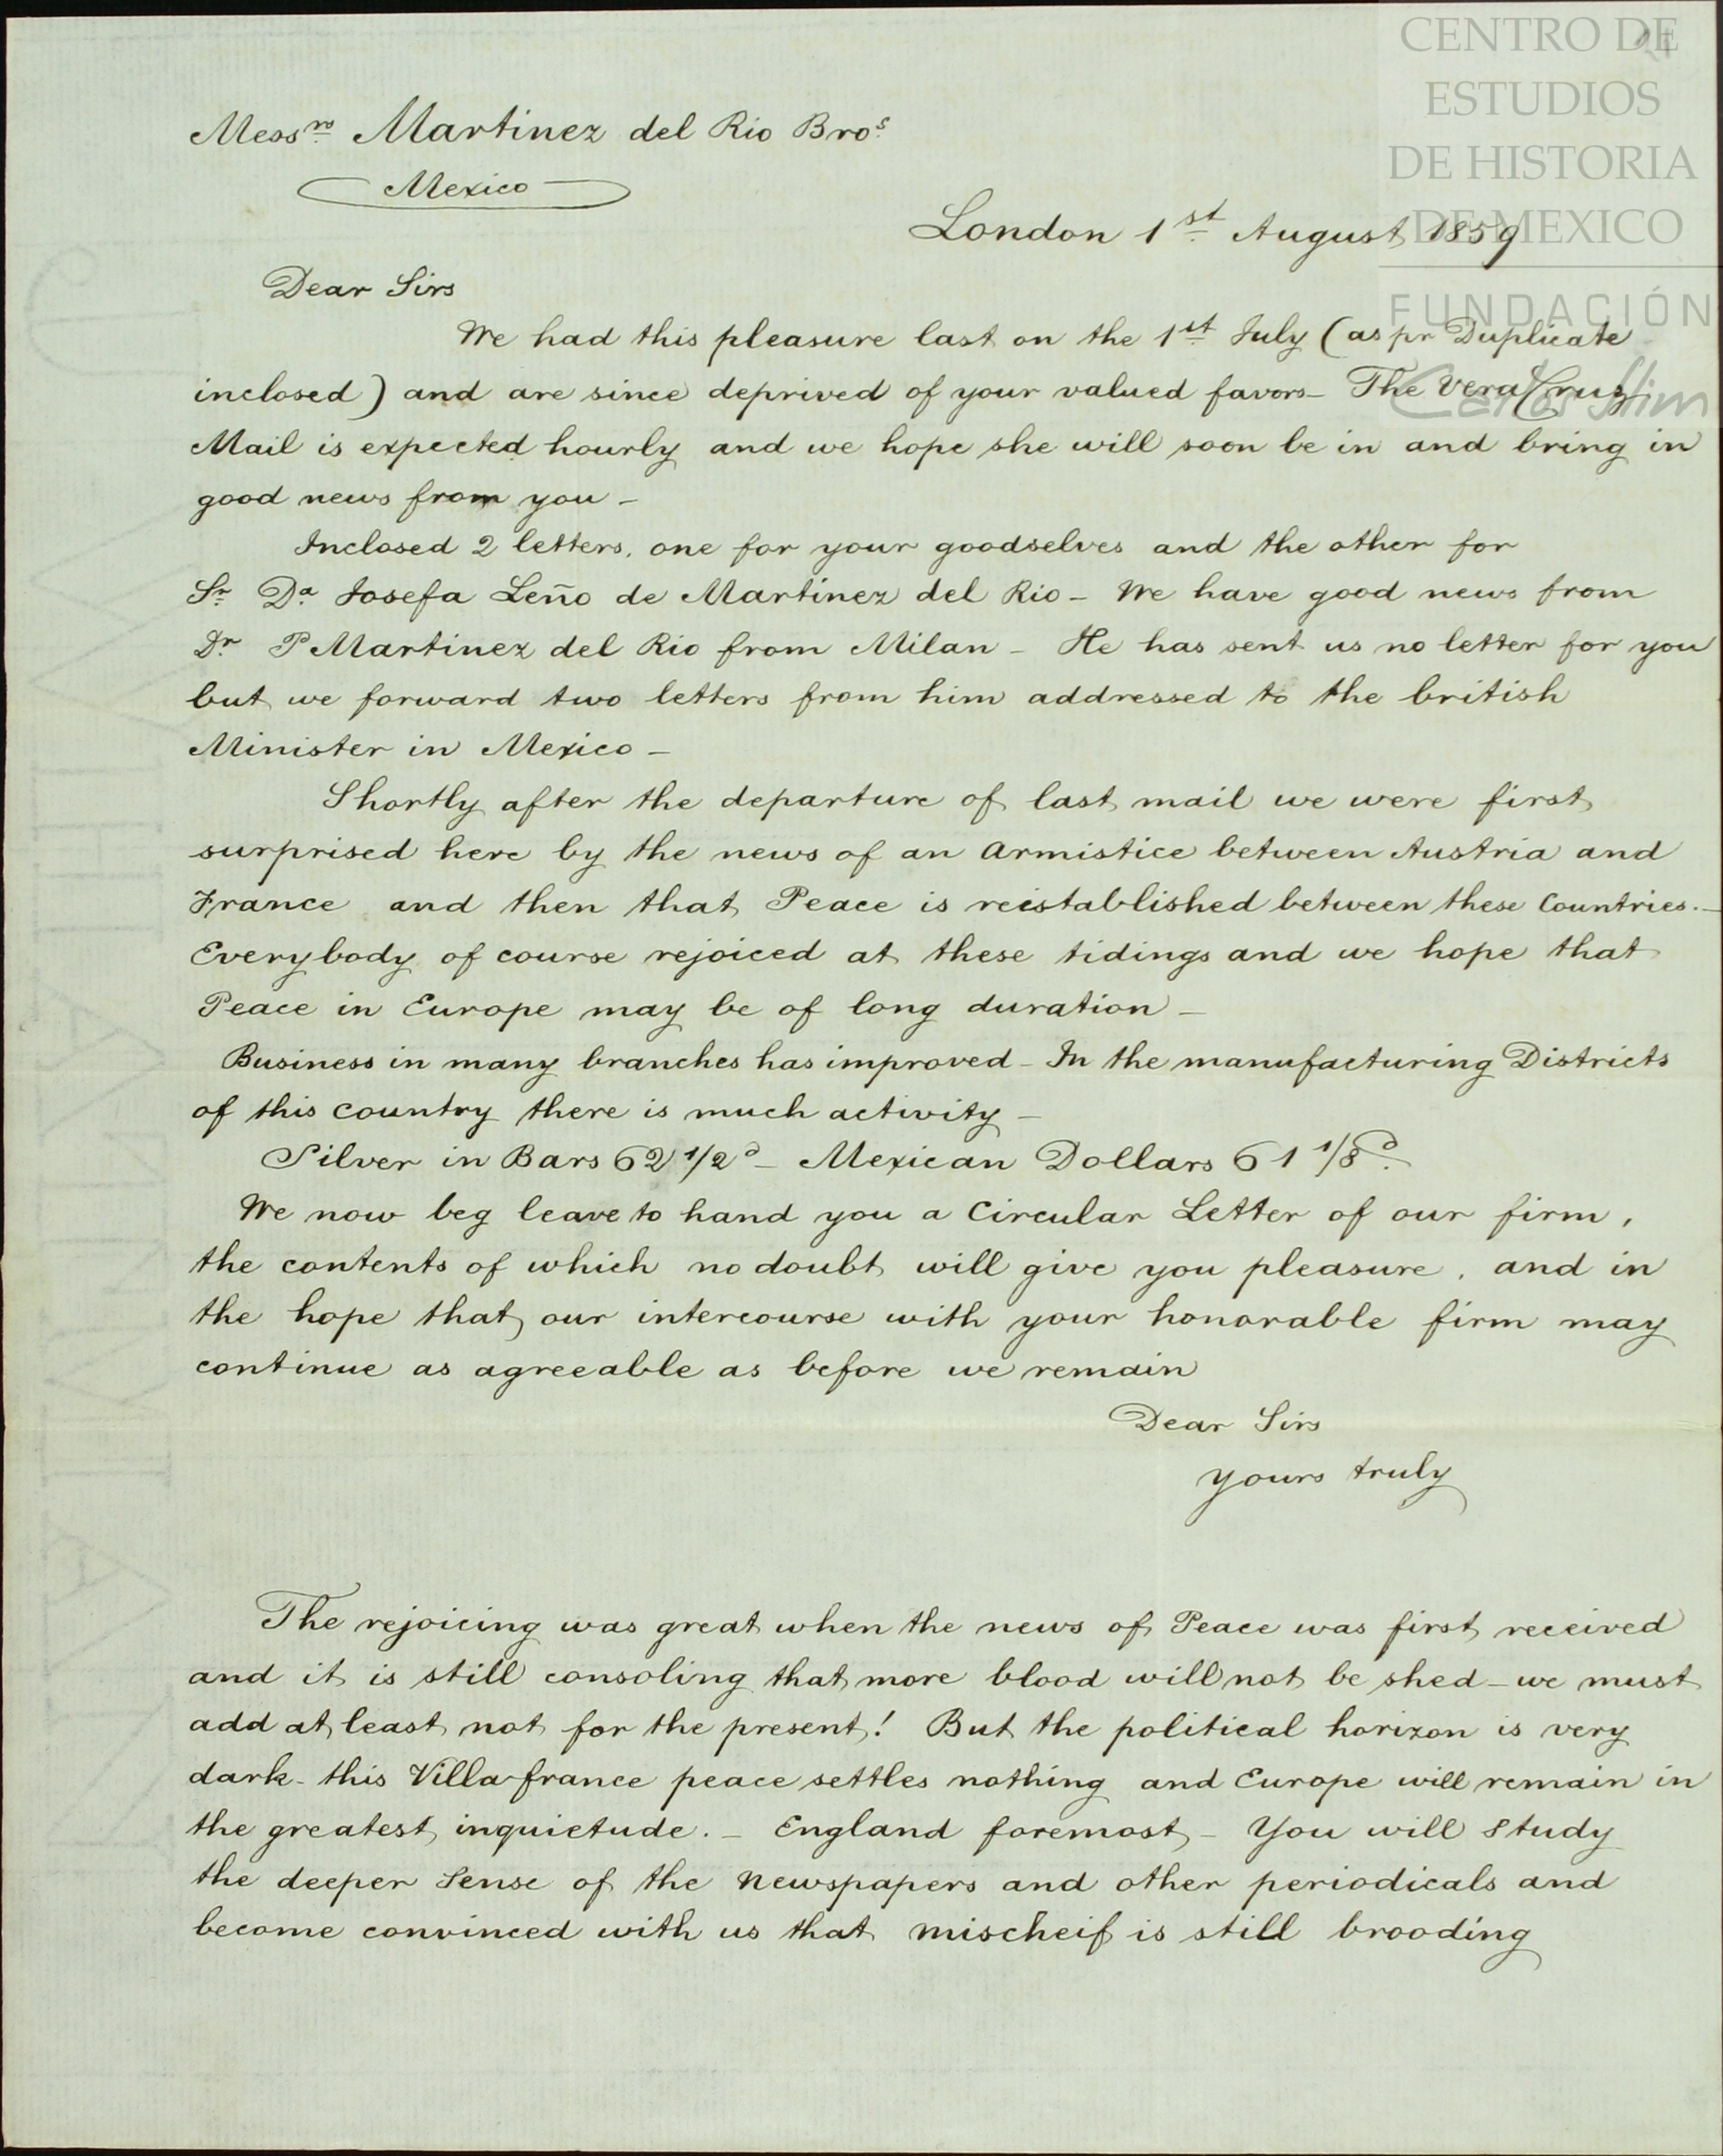 CENTRO DE
ESTUDIOS
DE HISTORIA
DE MEXICO
FUNDACIÓN
Carlos Slim
Messrs Martinez del Rio Bros
Mexico
London 1st August 1859
Dear Sirs
We had this pleasure last on the 1st July (as pr Duplicate
inclosed) and are since deprived of your valued favors – The Vera Cruz
Mail is expected hourly and we hope she will soon be in and bring in
good news from you –
Inclosed 2 letters, one for your goodselves and the other for
Sr Da Josefa Leño de Martinez del Rio – We have good news from
Dr P Martinez del Rio from Milan – He has sent us no letter for you
but we forward two letters from him addressed to the british
Minister in Mexico –
Shortly after the departure of last mail we were first
surprised here by the news of an Armistice between Austria and
France and then that Peace is reistablished between these Countries. –
Everybody of course rejoiced at these tidings and we hope that
Peace in Europe may be of long duration –
Business in many branches has improved – In the manufacturing Districts
of this country there is much activity –
Silver in Bars 62 1/2 d – Mexican Dollars 61 1/8 d.
We now beg leave to hand you a Circular Letter of our firm,
the contents of which no doubt will give you pleasure, and in
the hope that our intercourse with your honorable firm may
continue as agreeable as before we remain
Dear Sirs
yours truly
The rejoicing was great when the news of Peace was first received
and it is still consoling that more blood will not be shed – we must
add at least not for the present! But the political horizon is very
dark – this Villafrance peace settles nothing and Europe will remain in
the greatest inquietude. – England foremost – You will study
the deeper sense of the newspapers and other periodicals and
become convinced with us that mischeif is still brooding